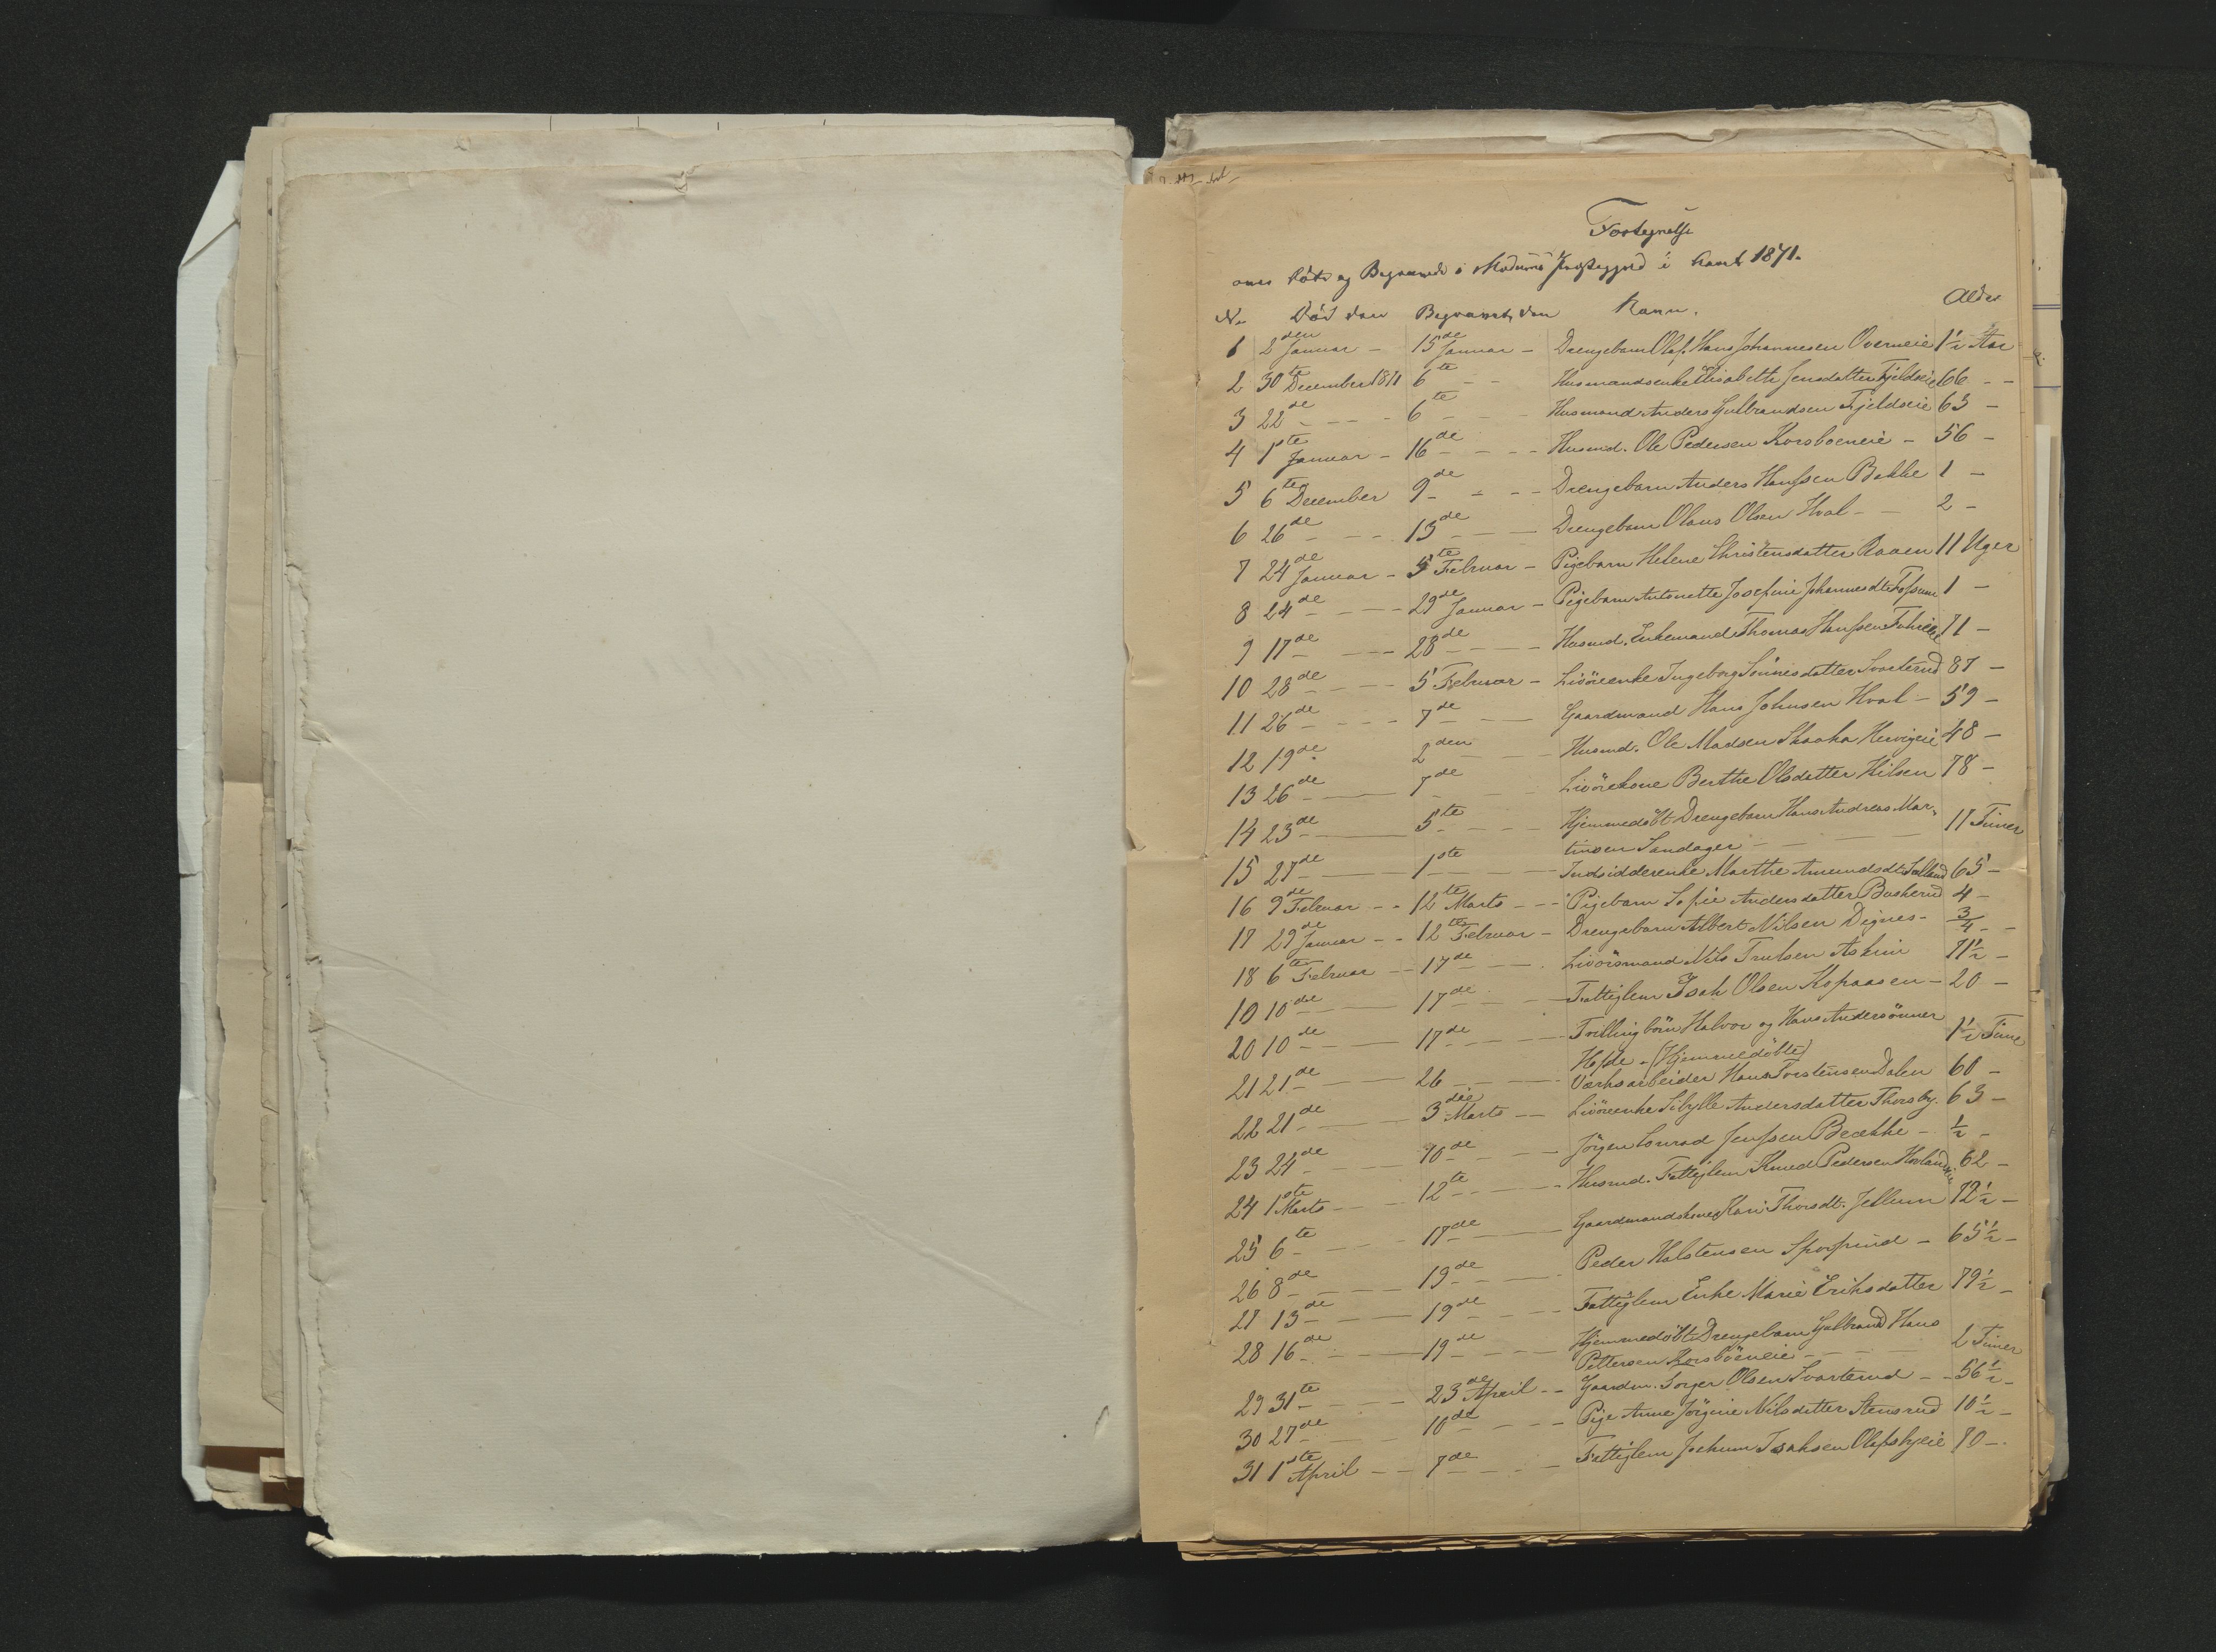 Fortegnelse
over døde og Begravede i Modums Præstegjeld i Aaret 1871.
No Død den Begravet den Navn. Alder
1 2den Januar - 15de Januar - Drengebarn Olaf Hans Johannesen Overneie 1½ Aar
2 30te December 1871 6te - - Husmandsenke Elisabeth Jensdatter Fjeldseie 66 - -
3 22de - - - - 6te - - - Husmand Anders Gulbrandsen Fjeldseie 63 -
4 1ste Januar - 16de - - - Husmd. Ole Pedersen Korsboeneie - 56 -
5 6te December 9de - - - Drengebarn Anders Hanssen Bakke 1 -
6 26de - - - 13de - - - Drengebarn Olaus Olsen Hval - - 2 -
7 24de Januar - 5te Februar - Pigebarn Helene Christensdatter Raaen 11 Uger
8 24de - - - - 29de Januar - Pigebarn Antonette Josefine Johannesdt. Fossum 1 -
9 17de - - - 28de - - - Husmd. Enkemand Thomas Hanssen 71 -
10 28de - - - - 5 Februar - Livöreenke Ingeborg Svarterud 87 -
11 26de - - - - 7de - - - Gaardmand Hans Johnsen Hval - 59 -
12 19de - 2den - - Husmd. Ole Madsen Skaaka 48 -
13 26de - - 7de - - - Livörekone Berthe Olsdatter Hilsen 78 -
14 23de - - 5te - - - Hjemmedöbt Drengebarn Hans Andreas Mar-
tinsen Sandager - - 11 Timer
15 27de - - 1ste - - Indsidderenke Marthe Amundsdt. 65 -
16 9de Februar - - 12te Marts - - - Pigebarn Sofie Andersdatter Buskerud 4 -
17 29de Januar - - 12te Februar - Drengebarn Albert Nilsen Dignes - ¾ - -
18 6te Februar - - 17de - - - Livöremand Nils Trulsen Askim 71½ -
19 10de - - 17de - - - Fattiglem Isak Olsen Kopaasen - 20 -
20 10de - - - 17de - - - Tvillingbörn Halvor og Hans Andersönner 1½ Time
Hofde - (Hjemmedöbte)
21 21de - - 26 - - - Værksarbeider Hans Torstensen Dalen 60 -
22 21de - - 3die Marts - - Livöreenke Sibylle Andersdatter Thorsby. 63 -
23 24de - - - 10de - - - Jörgen Conrad Jenssen Brække - ½ -
24 1ste Marts - - - 12te - - - Husmd. Fattiglem Knud Pedersen 62 -
25 6te - - - 17de - - - Gaardmandskone Kari Thorsdt. Jellum 72½ -
26 8de - - - 19de - - - Peder Halstensen - 65½ -
27 13de - - - 19de - - - Fattiglem Enke Marie Eriksdatter 79½ -
28 16de - - - 19de - - - Hjemmedöbt Drengebarn Gulbrand Hans
Pettersen Korsböeneie - - - 2 Timer
29 31te - - - - 23de April - - Gaardm. Torger Olsen Svarterud - - 56½ -
30 27de - - - 10de - - - Pige Anne Jörgine Nilsdatter Stensrud 10½ -
31 1ste April - - 7de - - - Fattiglem Jochum Isaksen Olafsbyeie 70 -